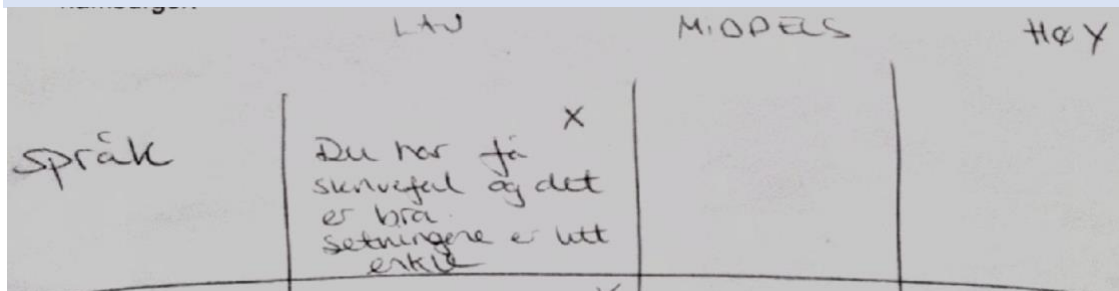 LAV MIDDELS HØY
språk
X
Du har få
skrivefeil og det
er bra.
setningene er litt
enkle